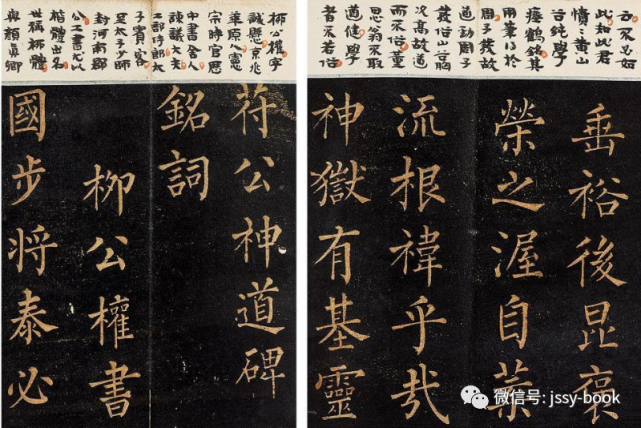 柳公權字
誠懸京兆
華原人憲
宗時官歷
中書舍人
諫議大夫
工部侍郎太
子賓客
至太子少師
封河南郡
公工書尤以
楷體出名
世稱柳體
與顏真卿
符公神道碑
銘詞
柳公權書
國步将泰必
此知此君
黃山
谷純學
瘞鶴銘其
用筆得於
周子發故
遒勁周子
發俗山谷胸
次高故遒
而不俗董
思翁不取
遒健學
者不若俗
垂裕後昆褒
榮之渥自葉
流根禕乎哉
神獄有基靈
微信号: jssy-book